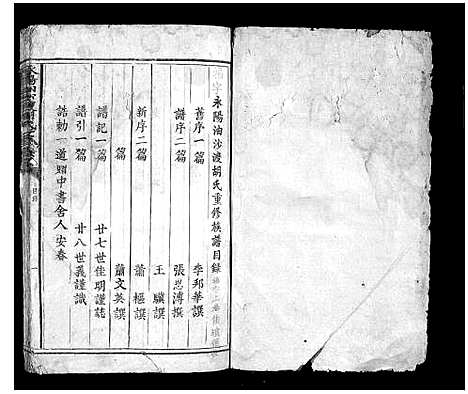 永陽油沙渡胡氏重修族譜目錄
舊序一篇 李邦華譔
譜序二篇 張思溥撰
王驥譔
新序二篇 蕭樞譔
篇 蕭文英譔
譜記一篇 廿七世佳明謹誌
譜引一篇 廿八世義謹識
誥勅一道 贈中書舍人安春
目錄
一